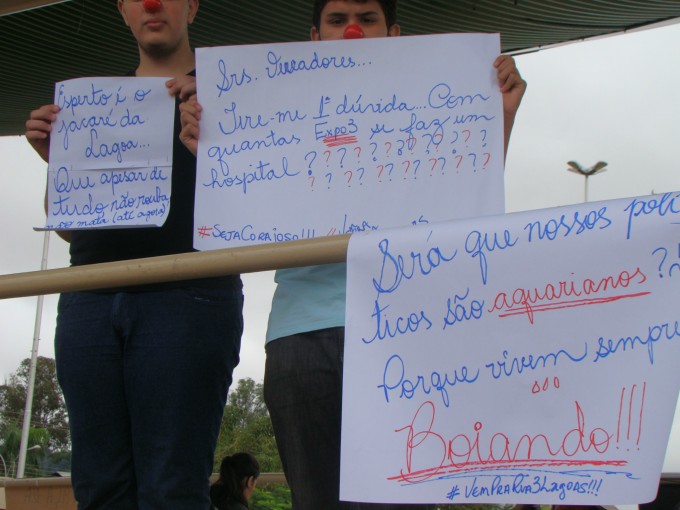 Esperto é o
jacaré da
Lagoa...
Que apesar de
tudo não rouba,
e nem mata (até agora)
Srs. Vereadores...
Tire-me 1ª dúvida... Com
quantas Expo3 se faz um
hospital ? ? ? ? ? ? ? ? ? ? ?
? ? ? ? ? ? ? ? ? ? ?
#SEJACORAJOSO!!!
Será que nossos polí
ticos são aquarianos?
Porque vivem sempre
...
Boiando!!!
#VEMPRARUA3LAGOAS!!!